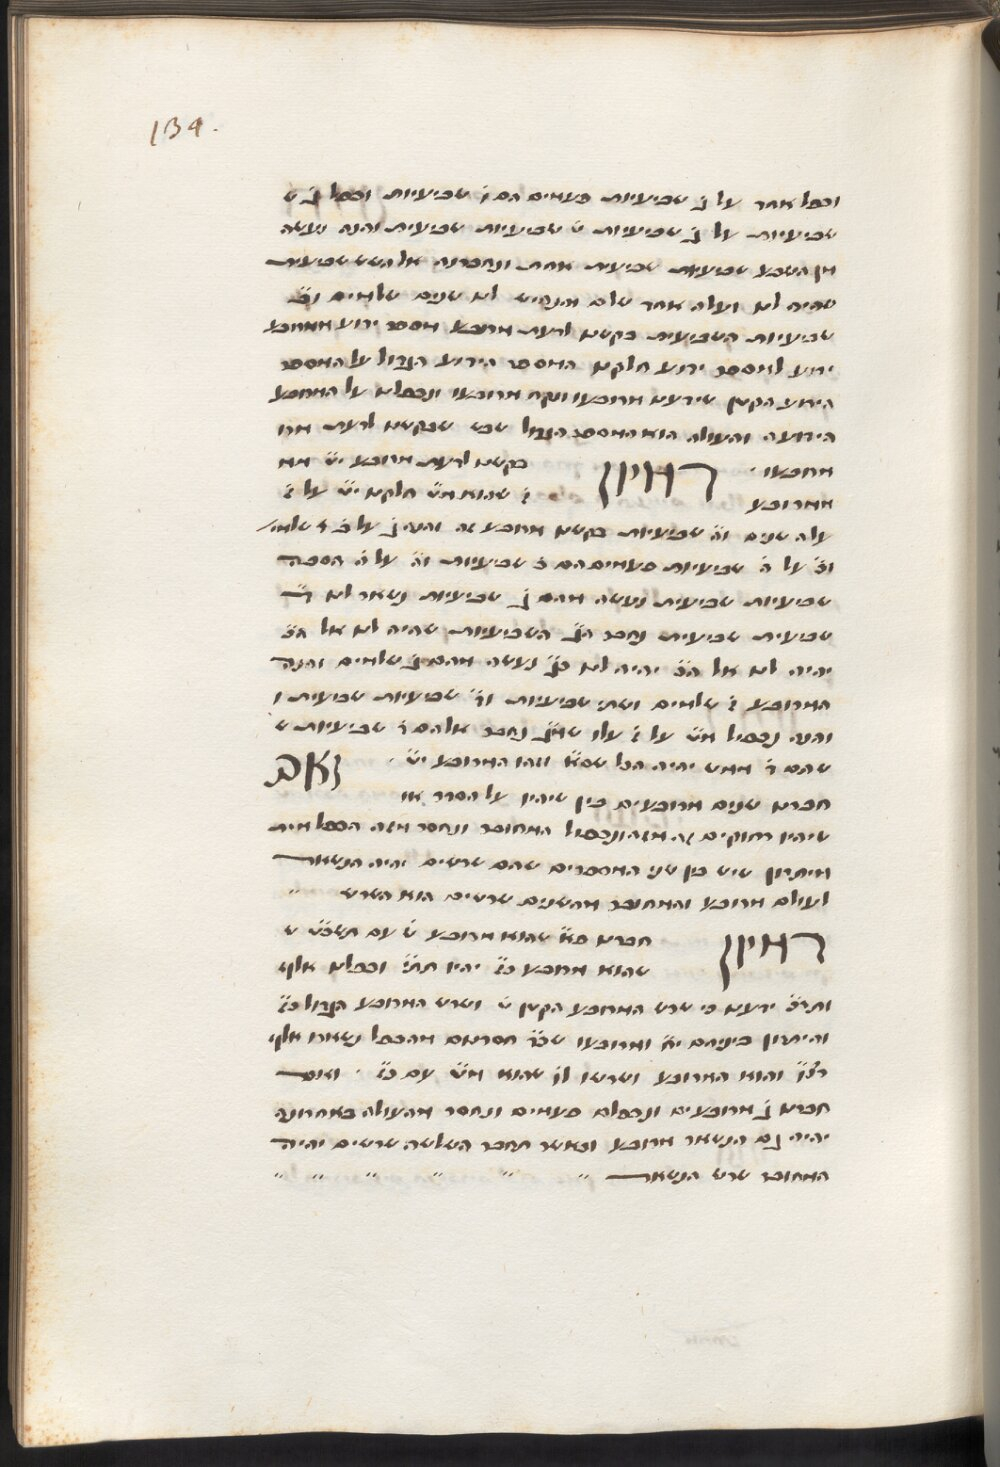 134.
וכפל אחד על ג שביעיות פעמים הם ו שביעיות וכפל ג ש
שביעיות על ג שביעיות ט שביעיות שביעית והנה נעשה
מן השבע שביעיות שביעית אחת ונחברנה אל השש שביעית
שהיה לנו ועלה אחד שלם ונקיש לנו שנים שלמים וב
שביעיות השביעית בקשנו לדעת מרובע מספר ידוע ממרובע
ידוע למספר ידוע חלקנו המספר הידוע הגדול על המספר
הידוע הקטן שידענו מרובעו ונקח מרובעו ונכפלנו על המרובע
הידועה והעולה הוא המספר הגדול שבש שבקשנו לדעת מרו
מרובעו · דמיון בקשנו לדעת מרובע יט ממ
ממרובע ז שהוא מט חלקנו יט על ז
עלה שנים וה שביעיות בקשנו מרובע זה והנה ב על ב ד שלמי
וב על ה שביעיות פעמים הם כ שביעיות וה על ה הם כה
שביעיות שביעית נעשה מהם ג שביעיות נשאר לנו ד
שביעית שביעית נחבר הג השביעיות שהיה לנו אל הכ
יהיה לנו אל הכ יהיה לנו כג נעשה מהם ג שלמים והנה
המרובע ז שלמים ושתי שביעיות וד שביעיות שביעית ו
והנה נכפול מט על ז עלו שמג נחבר אלהם ד שביעיות ש
שהם יד ממש יהיה הכל שסא וזהו המרובע יט · ואם
חברנו שנים מרובעים בין שיהיו על הסדר או
שיהיו רחוקים זה מזה ונכפול המחובר ונחסר מזה הכפל מית
מיתרון שיש בין שני המספרים שהם שרשים יהיה הנשאר
לעולם מרובע והמחובר מהשנים שרשים הוא השרש "
דמיון חברנו פא שהוא מרובע ט עם תשכט ש
שהוא מרובע כז יהיו תתי וכפלנו אלף
ותרכ ידענו כי שרש המרובע הקטן ט ושרש המרובע הגדול כז
והיתרון ביניהם יח ומרובעו שכד חסרנום מהכפל נשארו אלף
רצו והוא המרובע ושרשו לו שהוא מט עם כז · ואם
חברנו ג מרובעים ונכפלם פעמים ונחסר מהעולה באחרונה
יהיה גם הנשאר מרובע וכאשר תחבר השלשה שרשים יהיה
המחובר שרש הנשאר " " " " " "